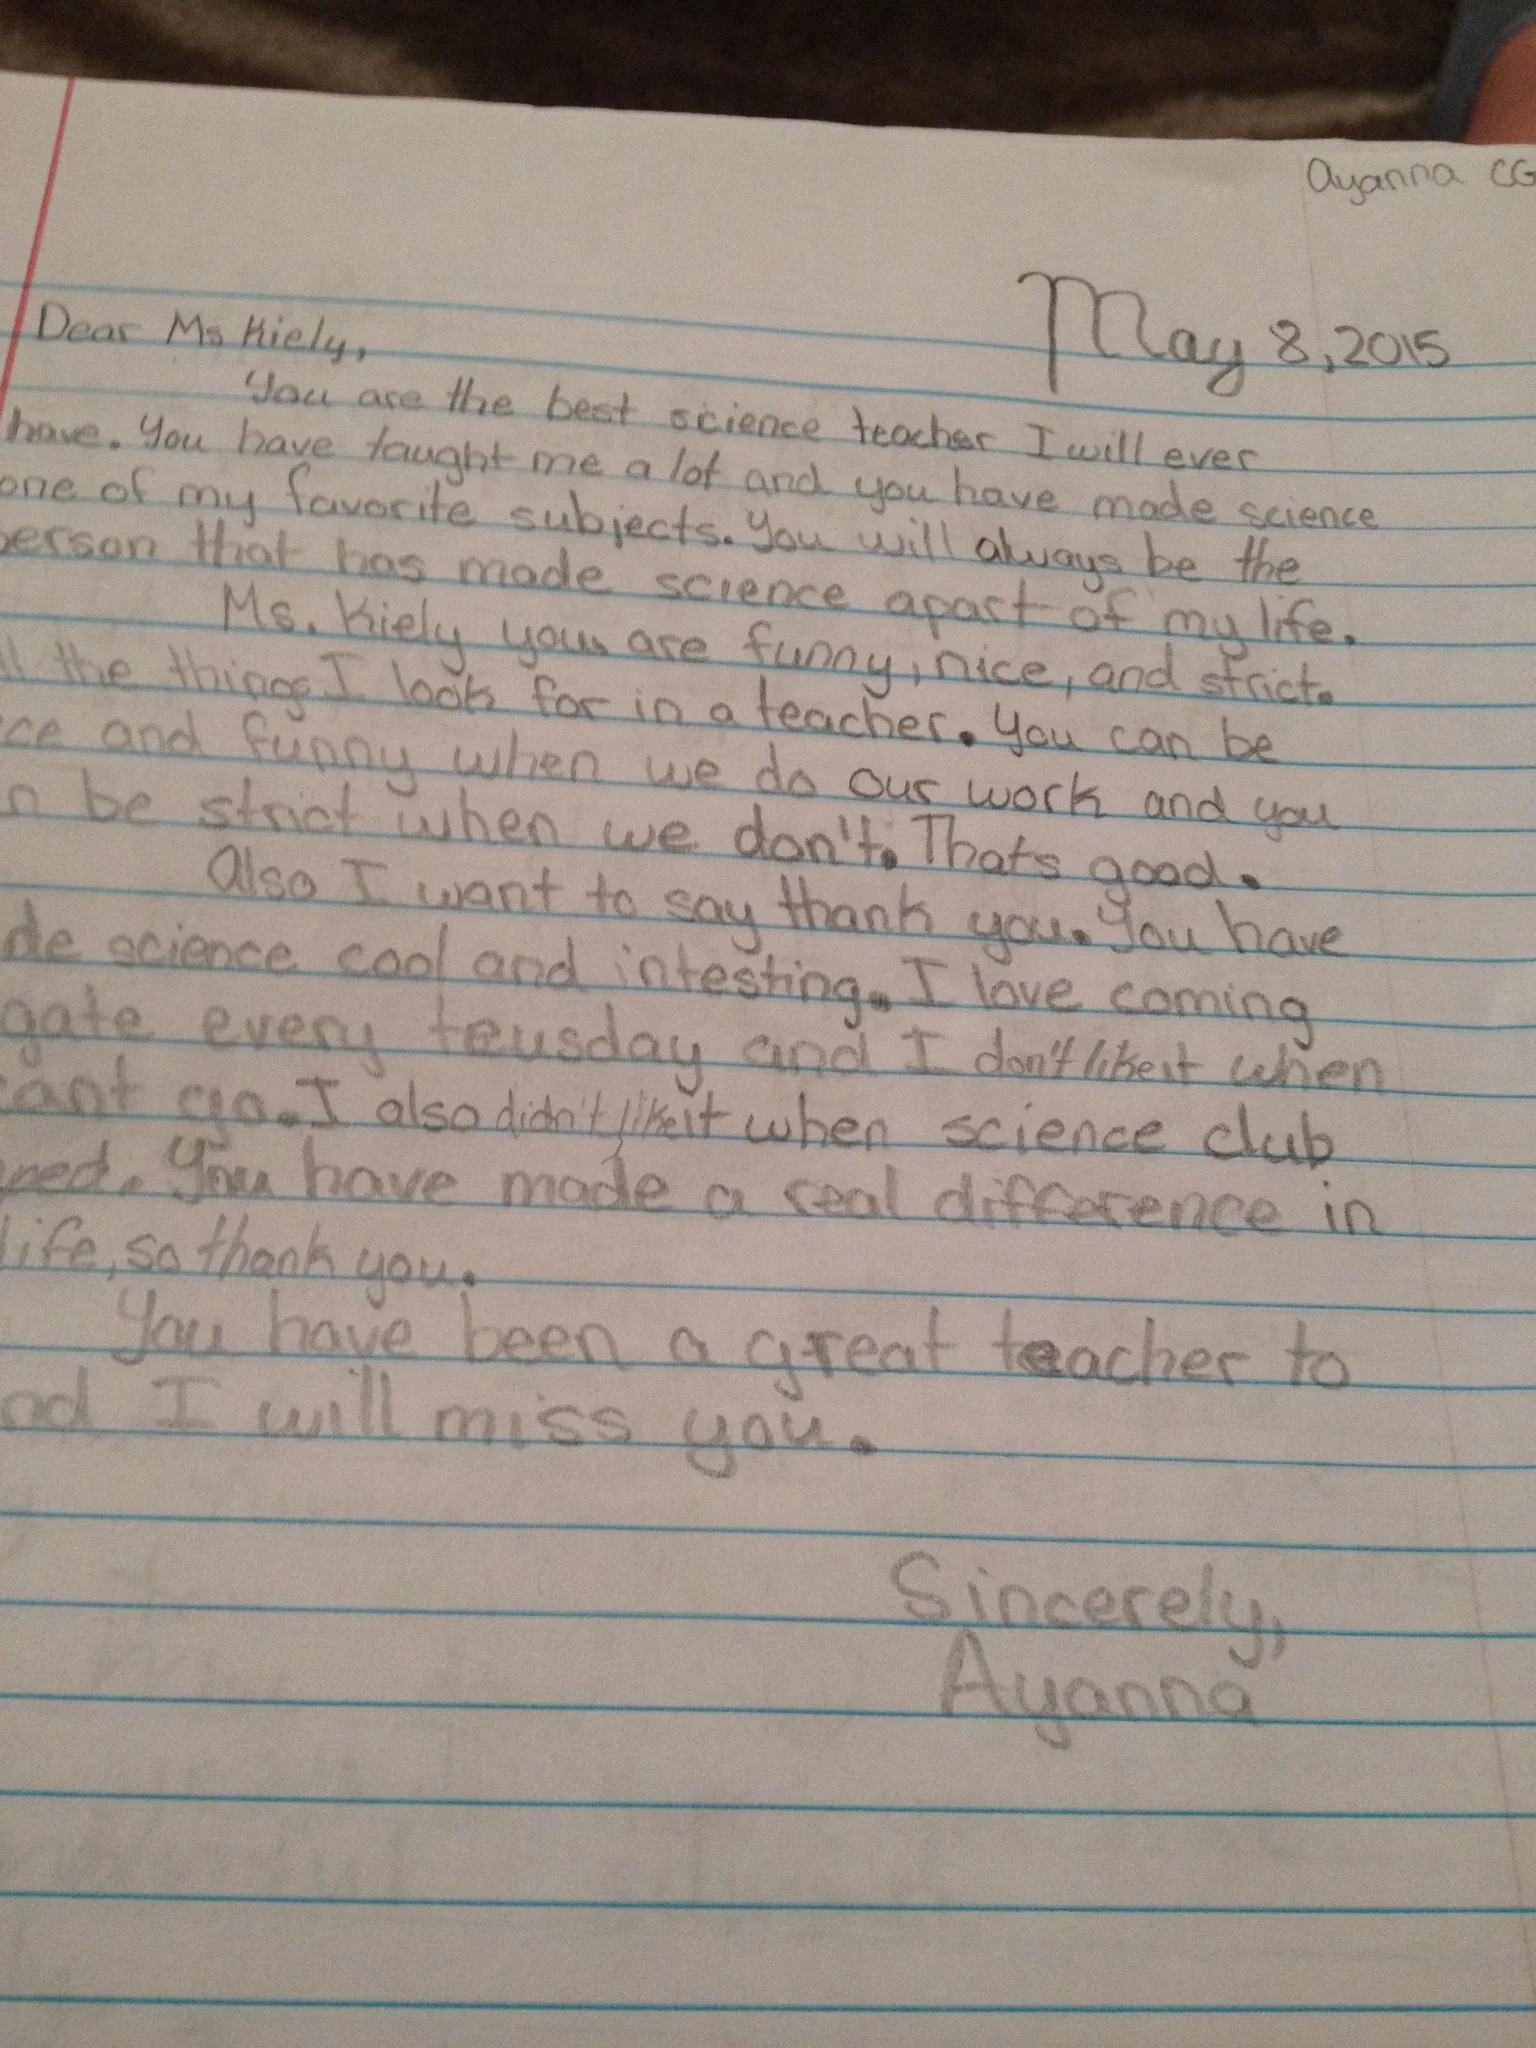 Ayanna CG
May 8, 2015
Dear Ms Kiely,
You are the best science teacher I will ever
have. You have taught me a lot and you have made science
one of my favorite subjects. You will always be the
person that has made science apart of my life.
Ms. Kiely you are funny, nice, and strict.
ll the things I look for in a teacher. You can be
ce and funny when we do our work and you
n be strict when we don't. Thats good.
Also I want to say thank you. You have
de science cool and intesting. I love coming
gate every teusday and I don't like it when
cant go. I also didn't like it when science club
ned. You have made a real difference in
life, so thank you.
You have been a great teacher to
nd I will miss you.
Sincerely,
Ayanna